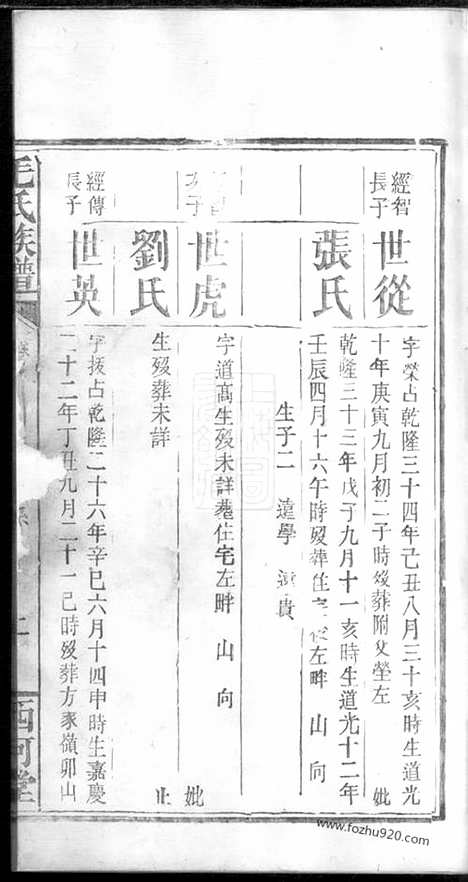 經智
長子
世從
字榮占乾隆三十四年己丑八月三十亥時生道光
十年庚寅九月初二子時歿葬附父塋左
妣
張氏
乾隆三十三年戊子九月十一亥時生道光十二年
壬辰四月十六午時歿葬住宅後左畔 山 向
生子二 遠學 遠貴
次子
世虎
字道高生歿未詳葬住宅左畔 山 向
妣
劉氏
生歿葬未詳
止
經傳
長子
世英
字援占乾隆二十六年辛巳六月十四申時生嘉慶
二十二年丁丑九月二十一巳時歿葬方家嶺卯山
毛氏族譜
卷
二
西河堂
www.fozhu920.com